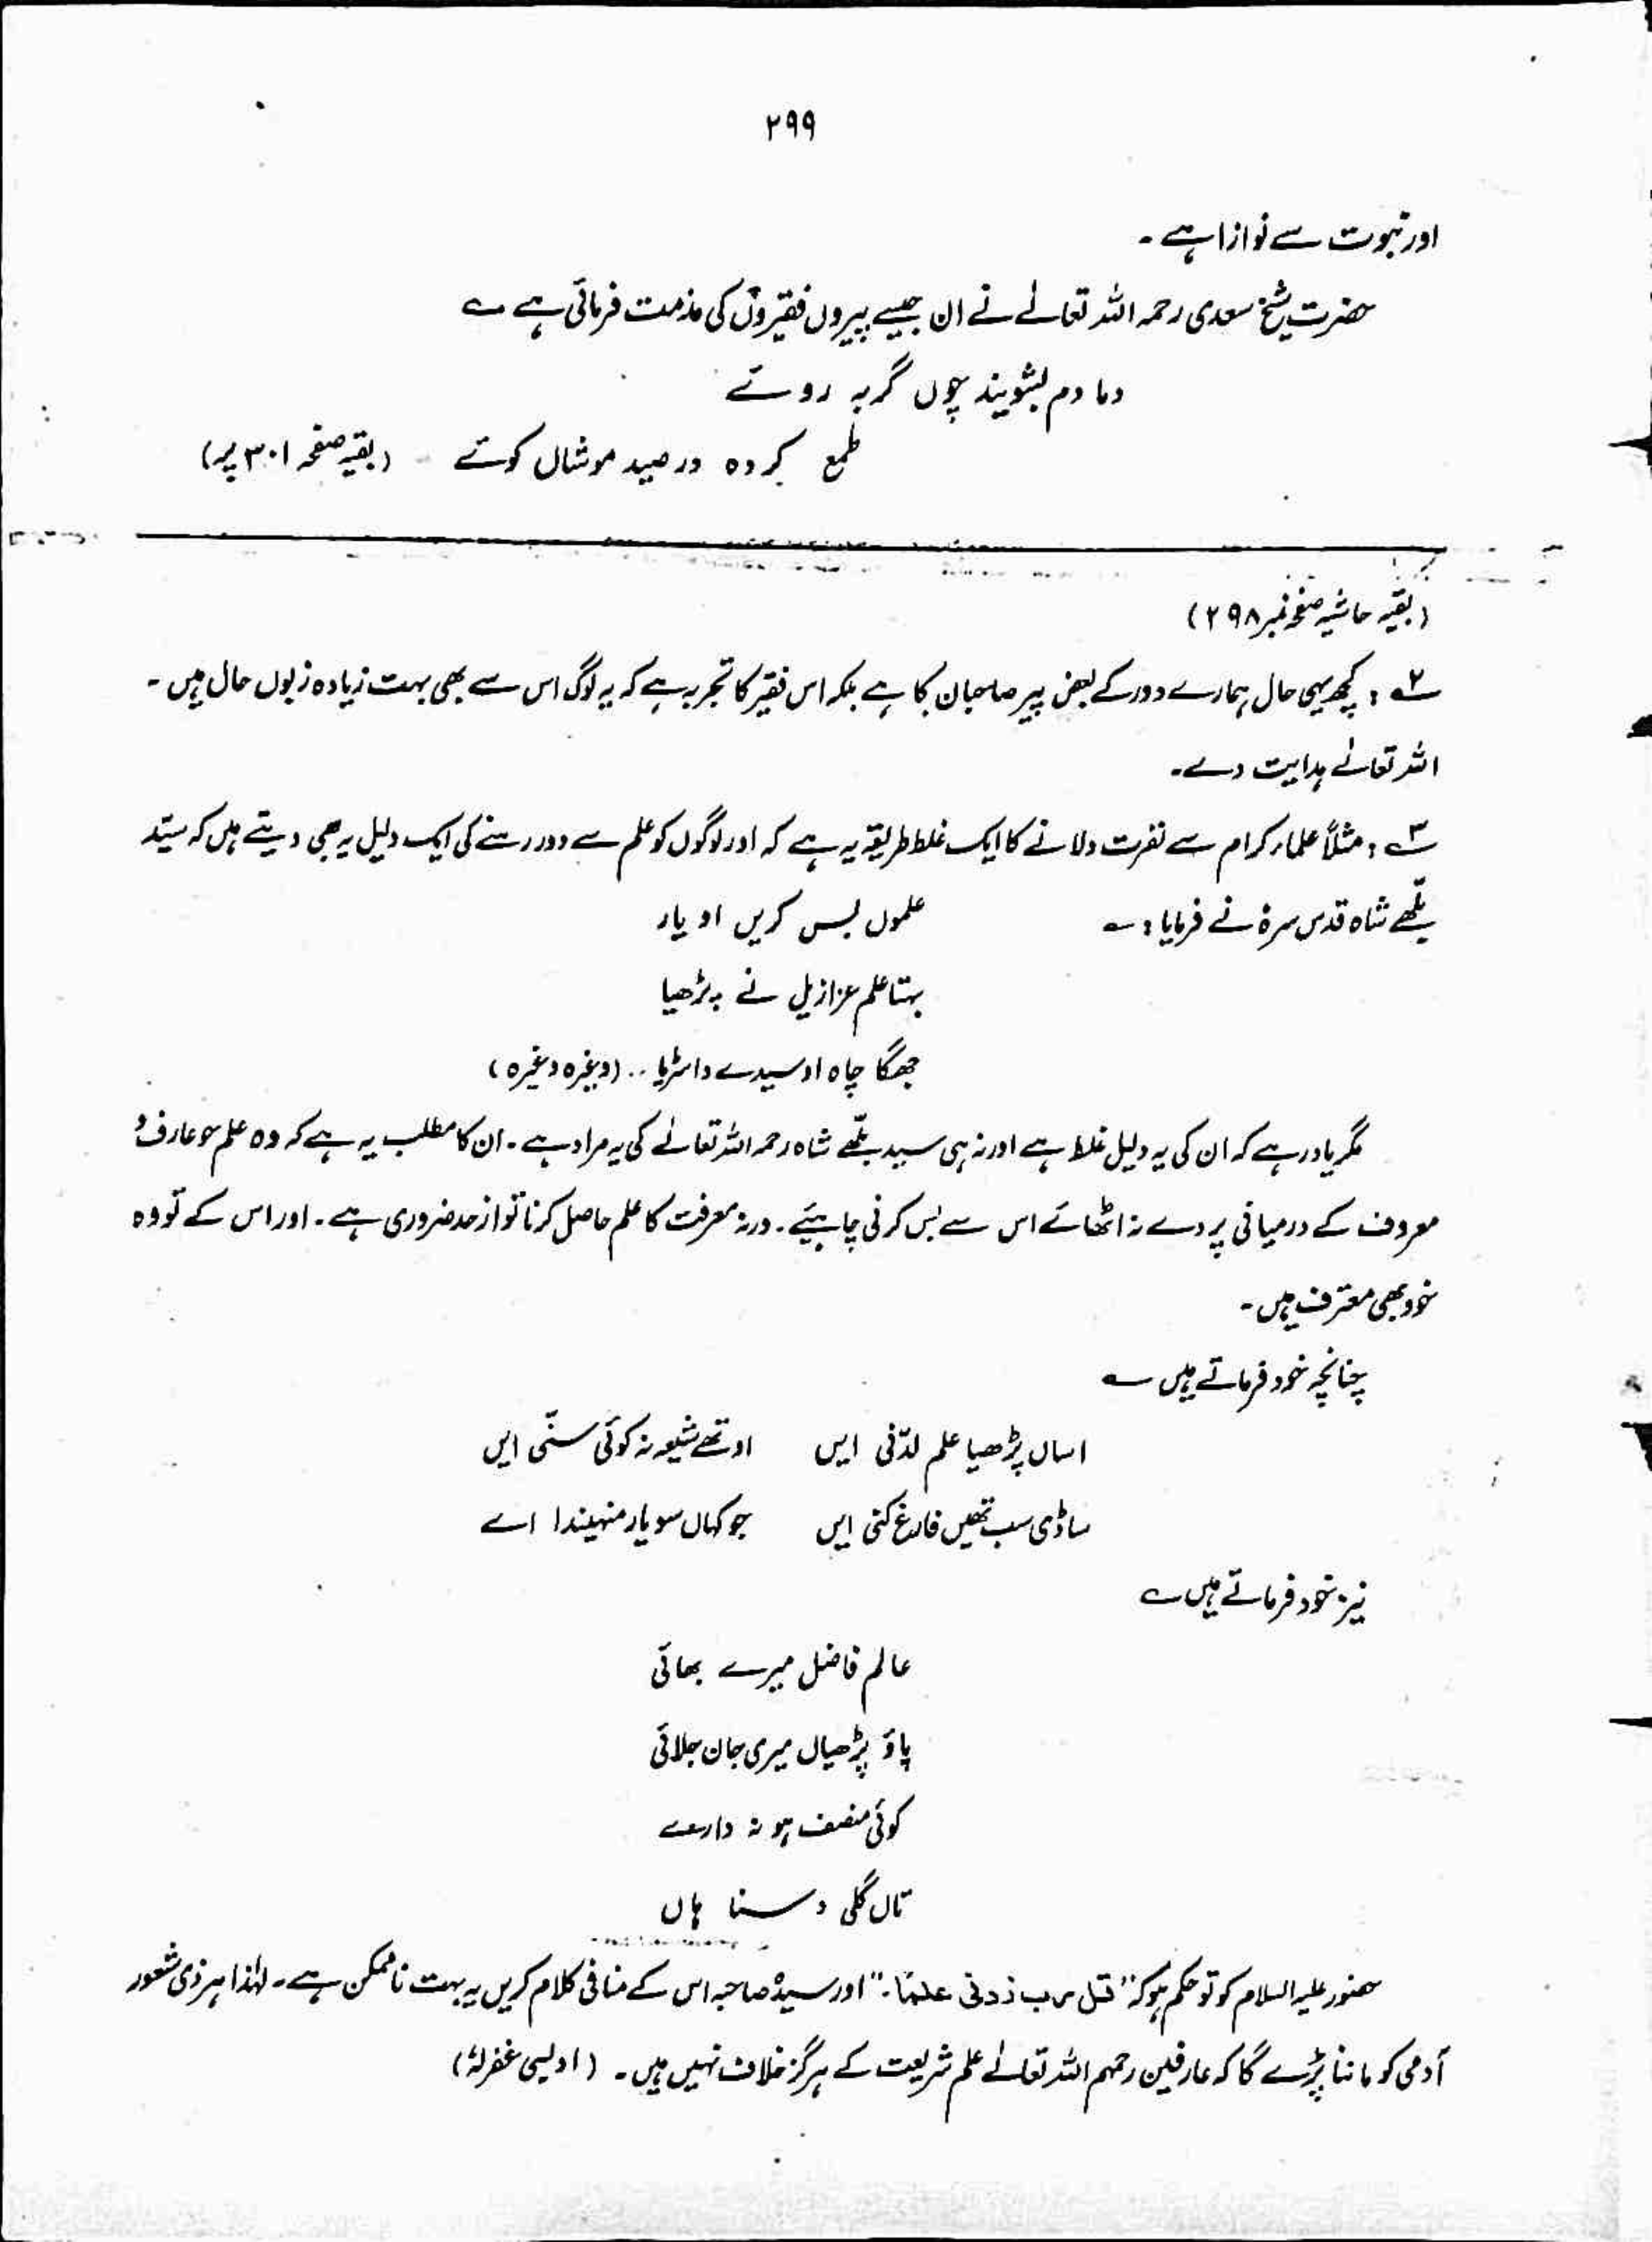 ۲۹۹
اور نبوت سے نوازا ہے ۔
حضرت شیخ سعدی رحمہ اللہ تعالےٰ نے ان جیسے پیروں فقیروں کی مذمت فرمائی ہے ؎
دما دم بشویند چوں گربہ روئے
طمع کردہ در صید موشاں کوئے (بقیہ صفحہ ۳۰۱ پر)
(بقیہ حاشیہ صفحہ نمبر ۲۹۸)
۲؎ : کچھ یہی حال ہمارے دور کے بعض پیر صاحبان کا ہے بلکہ اس فقیر کا تجربہ ہے کہ یہ لوگ اس سے بھی بہت زیادہ زبوں حال ہیں ۔
اللہ تعالےٰ ہدایت دے۔
۳؎ : مثلاً علماء کرام سے نفرت دلانے کا ایک غلط طریقہ یہ ہے کہ اور لوگوں کو علم سے دور رہنے کی ایک دلیل یہ بھی دیتے ہیں کہ سیّد
بلّھے شاہ قدس سرہٗ نے فرمایا : ؎ علموں بس کریں او یار
بہتا علم عزازیل نے پڑھیا
جھگا چاہ اوسیدے دا سڑیا .. (وغیرہ وغیرہ)
مگر یاد رہے کہ ان کی یہ دلیل غلط ہے اور نہ ہی سید بلّھے شاہ رحمہ اللہ تعالےٰ کی یہ مراد ہے ۔ ان کا مطلب یہ ہے کہ وہ علم جو عارف و
معروف کے درمیانی پردے نہ اٹھائے اس سے بس کرنی چاہیئے ۔ ورنہ معرفت کا علم حاصل کرنا تو از حد ضروری ہے ۔ اور اس کے تو وہ
خود بھی معترف ہیں ۔
چنانچہ خود فرماتے ہیں ؎
اساں پڑھیا علم لدّنی ایں اوتھے شیعہ نہ کوئی سنّی ایں
ساڈی سب تھیں فارغ کنی ایں جو کہاں سو یار منہیندا اے
نیز خود فرماتے ہیں ؎
عالم فاضل میرے بھائی
پاؤ پڑھیاں میری جان جلائی
کوئی منصف ہو نہ دارے
تاں گلی دسنا ہاں
حضور علیہ السلام کو تو حکم ہو کہ "قل رب زدنی علمًا۔" اور سیدہ صاحبہ اس کے منافی کلام کریں یہ بہت ناممکن ہے۔ لہٰذا ہر ذی شعور
آدمی کو ماننا پڑے گا کہ عارفین رحمہم اللہ تعالےٰ علم شریعت کے ہرگز خلاف نہیں ہیں ۔ (اویسی غفرلہٗ)